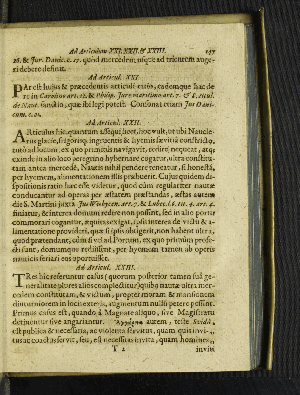 Ad Articulum XXI. XXII. & XXIII. 147
18. & Jur. Danic. c. 17. quod mercedem usque ad trientem auge-
ri debere definit.
Ad Articul. XXI.
PAr est hujus & præcedentis articuli ratio, eademque hac de
re in Carolino art. 12. & Philip. Jure maritimo art. 7. &
de Naut. sanctio, quæ ibi legi potest. Consonat etiam Jus Dani-
cum. c. 21.
Ad Articul. XXII.
ARticulus hic, quantum assequi licet, hoc vult, ut ubi Naucle-
rus glacie, frigorisq; ingruentis & hyemis sævitia constricto,
aut ad locum, ex quo primùm navigavit, redire nequeat, atq;
exinde in alio loco peregrino hybernare cogatur, ultra constitu-
tam antea mercedem, Nautis nihil pendere teneatur, si honestâ,
per hyemem, alimentationem illis præbuerit. Cujus quidem di-
spositionis ratio hæc esse videtur, quod cùm regulariter nautæ
conducantur ad operas per æstatem præstandas, æstas autem
die S. Martini juxta Jus Wisbycens. art. 7. & Lubec. lib. 6. tit. 4. art. 4.
finiatur, & interea domum redire non possint, sed in alio portu
commorari cogantur, æquitas exigat, ipsis interea de victu & a-
limentatione provideri, quæ si ipsis obtigerit, non habent ultra,
quod prætendant, cùm si vel ad Portum, ex quo primùm profe-
cti, domumque rediissent, per hyemem tamen ab operis
nauticis feriari eos oportuisset.
Ad Articul. XXIII.
TRes hic referuntur casus (quorum posterior tamen sua ge-
neralitate plures alios complectitur) quibus nautæ ultra mer-
cedem constitutam, & victum, propter moram & mansionem
diuturniorem in locis exteris, augmentum nulli petere possunt.
Primus casus est, quando à Magnate aliquo, sive Magistratu
detinentur sive angariantur. Ἀγγάρεια autem, teste Suidâ,
est publica & necessaria, ac violenta servitus, quam quis invi-
tus ac coactus servit, seu, est necessitas invita, quam homines,
T 2 inviti